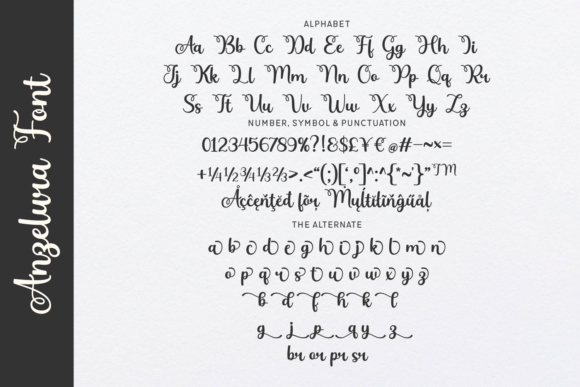 Anzelura Font
ALPHABET
Aa Bb Cc Dd Ee Ff Gg Hh Ii
Jj Kk Ll Mm Nn Oo Pp Qq Rr
Ss Tt Uu Vv Ww Xx Yy Zz
NUMBER, SYMBOL & PUNCTUATION
0123456789%?!&$£¥€@#-~×=
+¼½¾⅓⅔>.<“(;)[‘,º]^:^{*~'}”™
Åçčęňţёď fõŗ Mųļţïľïňğűąļ
THE ALTERNATE
a b c d e g h i j k l m n
o p q r s t u v w x y z
b d f h k l
g j p q y z
br or pr sr